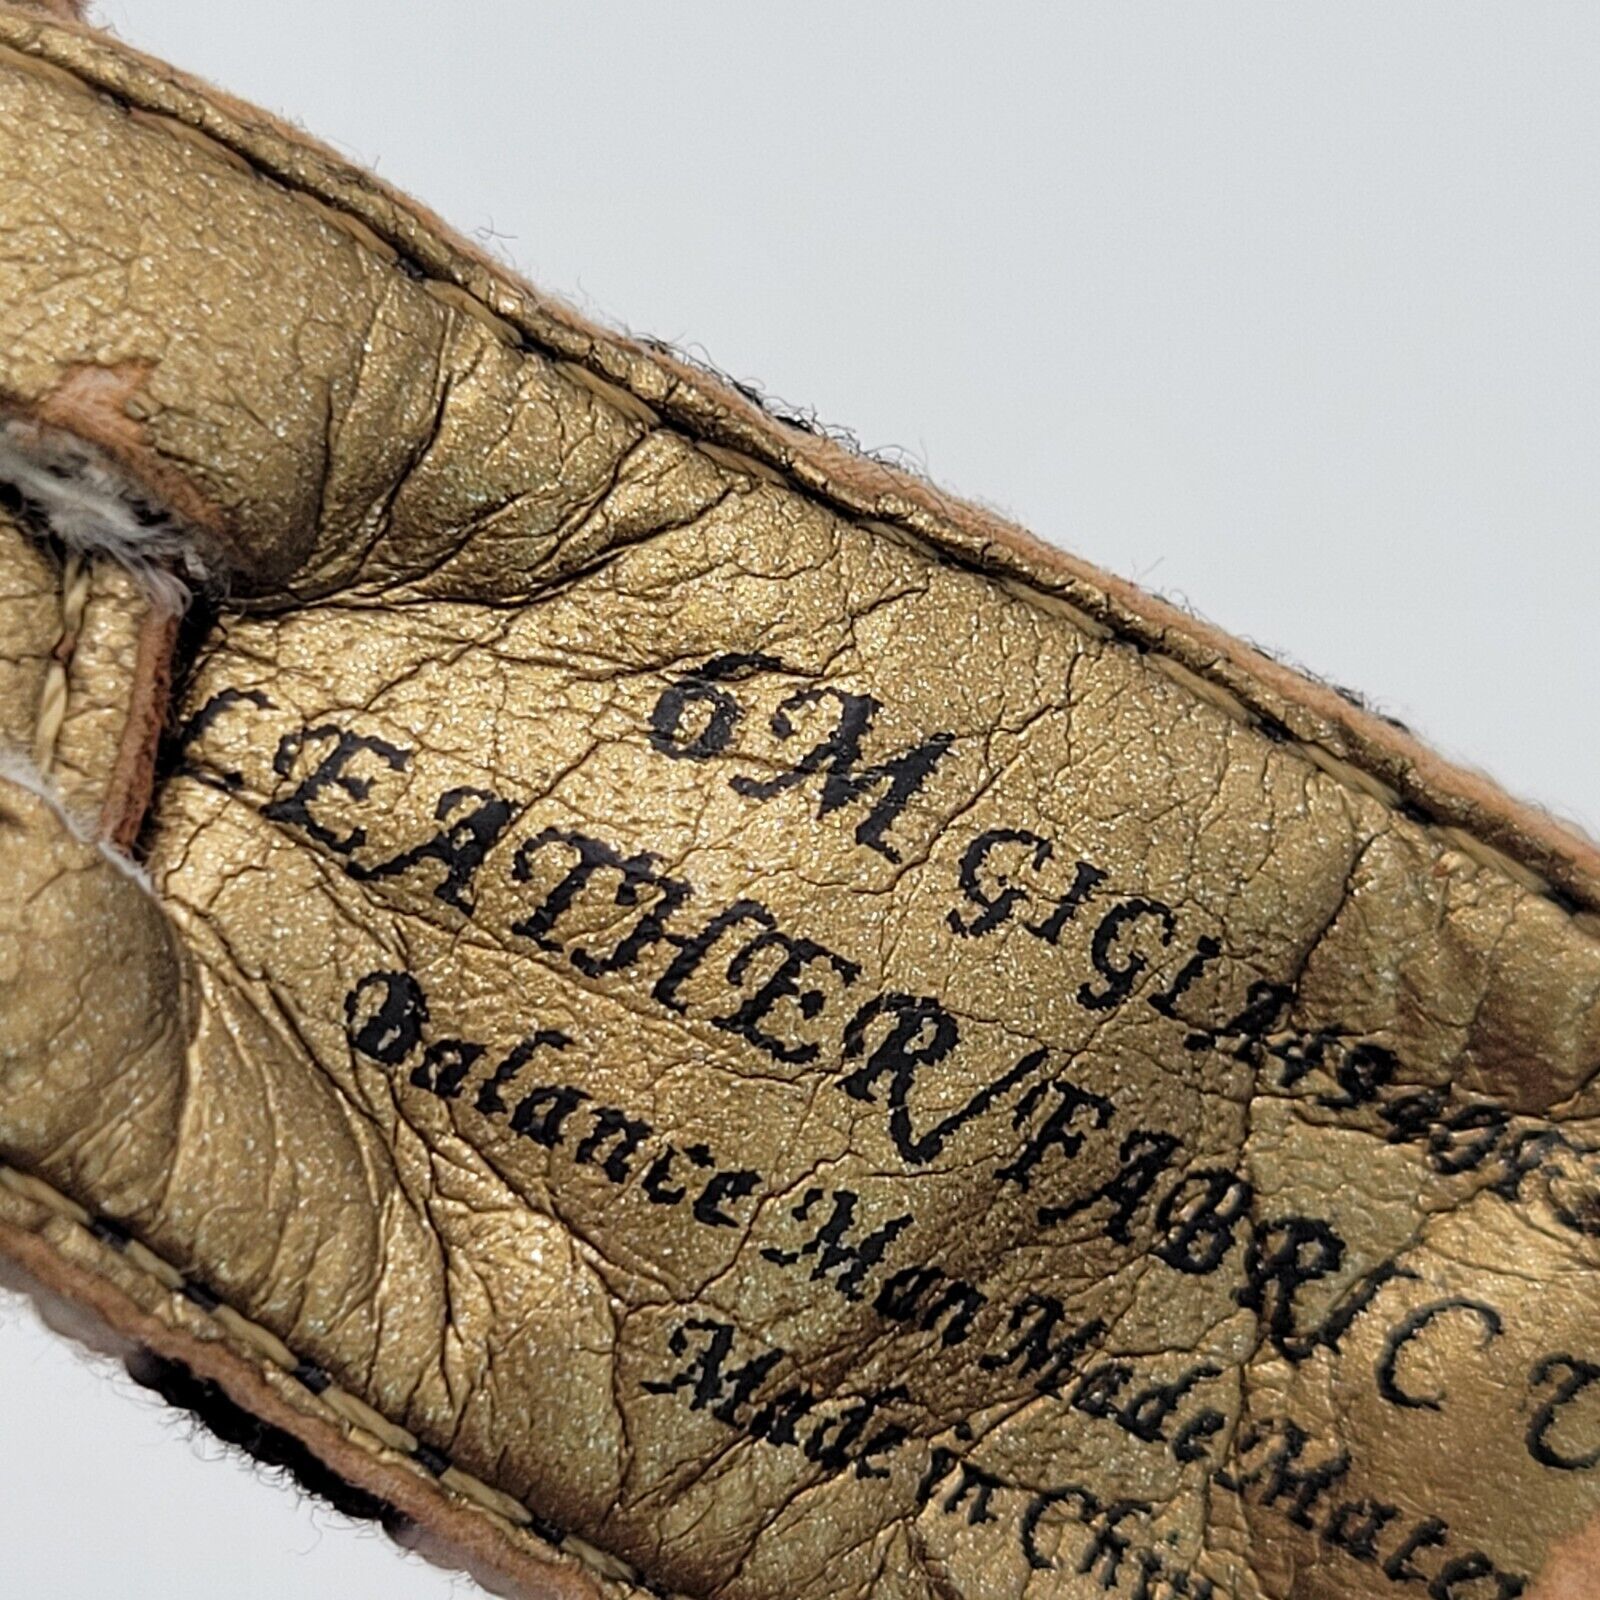 6M GIGI
LEATHER/FABRIC U
Balance Man Made Mate
Made in Chin